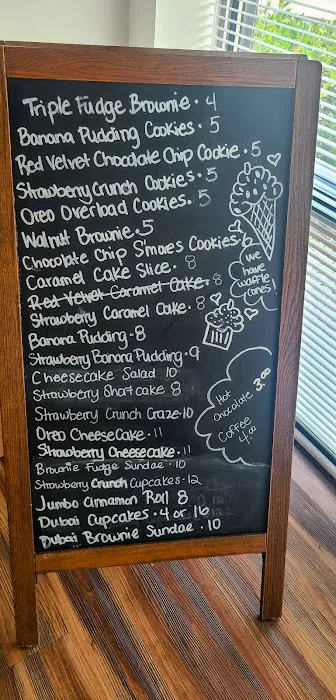 Triple Fudge Brownie · 4
Banana Pudding Cookies · 5
Red Velvet Chocolate Chip Cookie · 5
Strawberry Crunch Cookies · 5
Oreo Overload Cookies · 5
Walnut Brownie · 5
Chocolate Chip S'mores Cookies · 6
Caramel Cake Slice · 8
Red Velvet Caramel Cake · 8
Strawberry Caramel Cake · 8
Banana Pudding · 8
Strawberry Banana Pudding · 9
Cheesecake Salad 10
Strawberry Shortcake 8
Strawberry Crunch Craze · 10
Oreo CheeseCake · 11
Strawberry Cheesecake · 11
Brownie Fudge Sundae · 10
Strawberry Crunch Cupcakes · 12
Jumbo Cinnamon Roll 8
Dubai Cupcakes · 4 or 16
Dubai Brownie Sundae · 10
we
have
waffle
cones!
Hot
Chocolate 3.00
Coffee
4.00